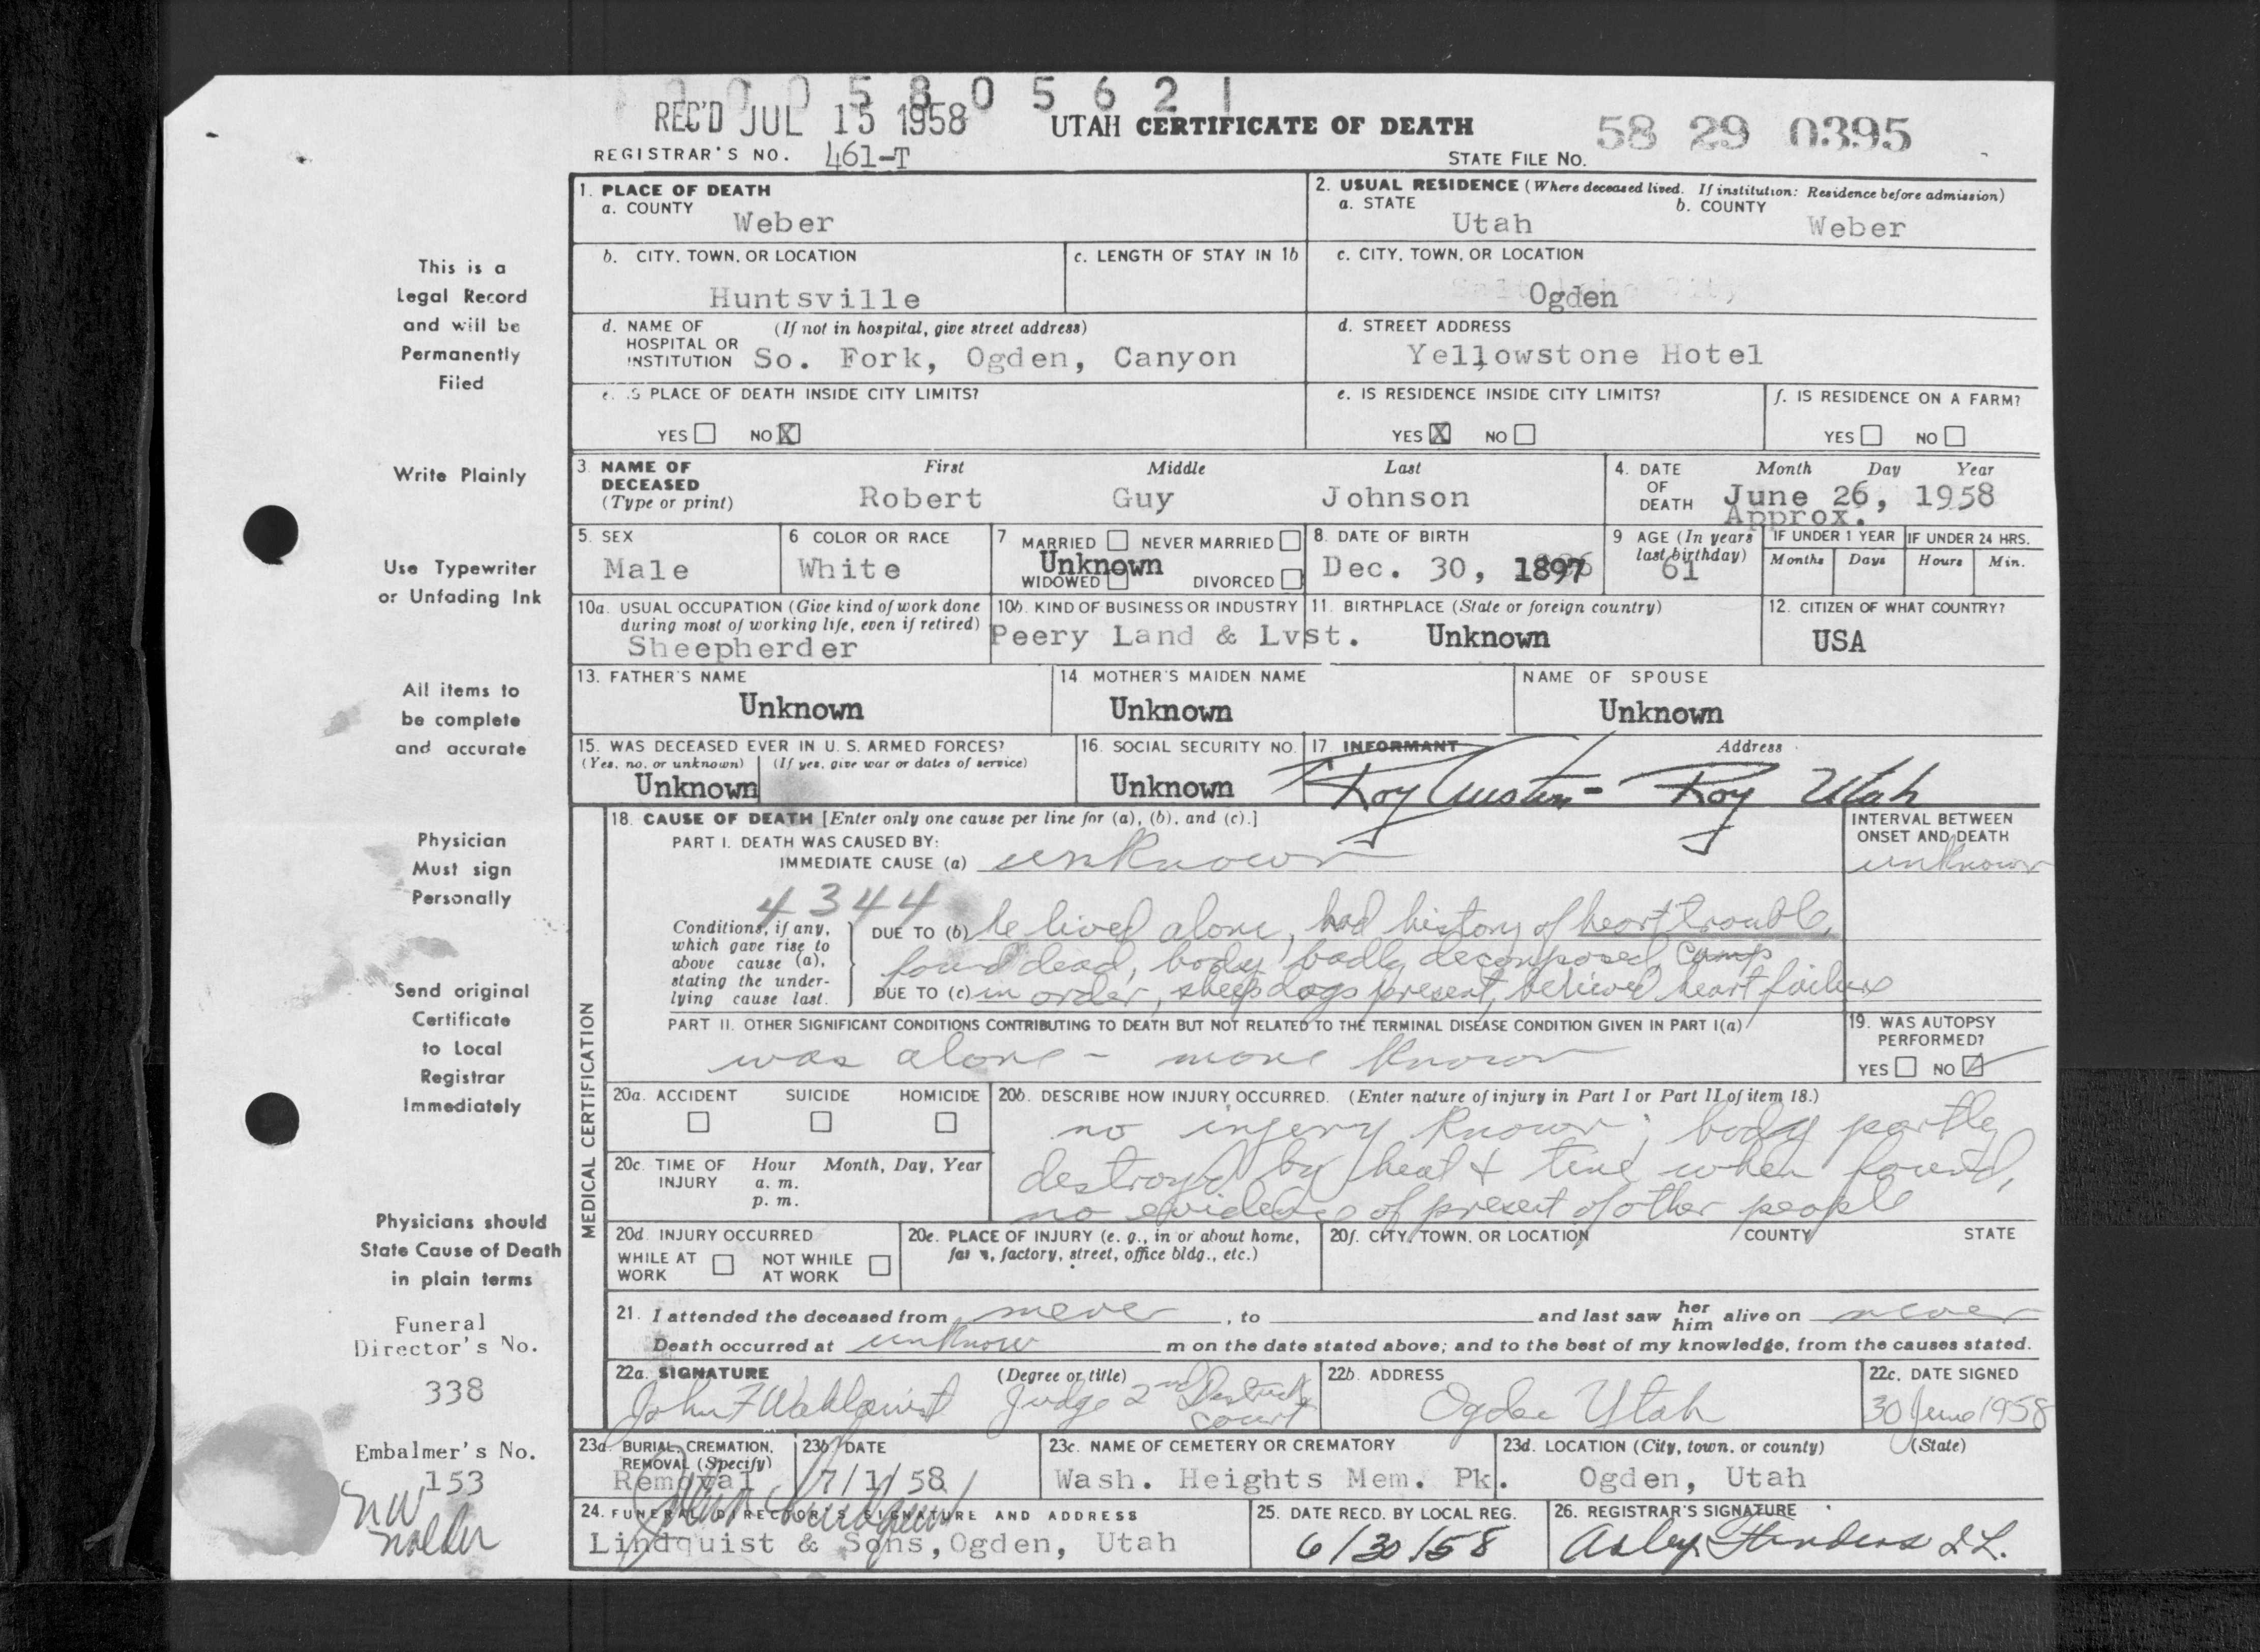 0 0 0 5 8 0 5 6 2 1
REC'D JUL 15 1958
UTAH CERTIFICATE OF DEATH
58 29 0395
REGISTRAR'S NO. 461-T
STATE FILE NO.
This is a
Legal Record
and will be
Permanently
Filed
Write Plainly
Use Typewriter
or Unfading Ink
All items to
be complete
and accurate
Physician
Must sign
Personally
Send original
Certificate
to Local
Registrar
Immediately
Physicians should
State Cause of Death
in plain terms
Funeral
Director's No.
338
Embalmer's No.
153
1. PLACE OF DEATH
a. COUNTY
Weber
2. USUAL RESIDENCE (Where deceased lived. If institution: Residence before admission)
a. STATE
Utah
b. COUNTY
Weber
b. CITY, TOWN, OR LOCATION
Huntsville
c. LENGTH OF STAY IN 1b
c. CITY, TOWN, OR LOCATION
Ogden
d. NAME OF HOSPITAL OR INSTITUTION (If not in hospital, give street address)
So. Fork, Ogden, Canyon
d. STREET ADDRESS
Yellowstone Hotel
e. IS PLACE OF DEATH INSIDE CITY LIMITS?
YES NO X
e. IS RESIDENCE INSIDE CITY LIMITS?
YES X NO
f. IS RESIDENCE ON A FARM?
YES NO
3. NAME OF DECEASED (Type or print)
First Middle Last
Robert Guy Johnson
4. DATE OF DEATH
Month Day Year
June 26, 1958
Approx.
5. SEX
Male
6 COLOR OR RACE
White
7 MARRIED NEVER MARRIED
Unknown
WIDOWED DIVORCED
8. DATE OF BIRTH
Dec. 30, 1897
9 AGE (In years last birthday)
61
IF UNDER 1 YEAR
Months Days
IF UNDER 24 HRS.
Hours Min.
10a. USUAL OCCUPATION (Give kind of work done during most of working life, even if retired)
Sheepherder
10b. KIND OF BUSINESS OR INDUSTRY
Peery Land & Lvst.
11. BIRTHPLACE (State or foreign country)
Unknown
12. CITIZEN OF WHAT COUNTRY?
USA
13. FATHER'S NAME
Unknown
14 MOTHER'S MAIDEN NAME
Unknown
NAME OF SPOUSE
Unknown
15. WAS DECEASED EVER IN U. S. ARMED FORCES?
(Yes, no, or unknown) (If yes, give war or dates of service)
Unknown
16. SOCIAL SECURITY NO.
Unknown
17. INFORMANT Address
Roy Austin - Roy Utah
MEDICAL CERTIFICATION
18. CAUSE OF DEATH [Enter only one cause per line for (a), (b), and (c).]
PART I. DEATH WAS CAUSED BY:
IMMEDIATE CAUSE (a) unknown
INTERVAL BETWEEN ONSET AND DEATH
unknown
4344
Conditions, if any, which gave rise to above cause (a), stating the underlying cause last.
DUE TO (b) he lived alone, had history of heart trouble,
found dead, body badly decomposed, camp
DUE TO (c) in order, sheep dogs present, believed heart failure
PART II. OTHER SIGNIFICANT CONDITIONS CONTRIBUTING TO DEATH BUT NOT RELATED TO THE TERMINAL DISEASE CONDITION GIVEN IN PART I(a)
was alone - none known
19. WAS AUTOPSY PERFORMED?
YES NO
20a. ACCIDENT SUICIDE HOMICIDE
20b. DESCRIBE HOW INJURY OCCURRED. (Enter nature of injury in Part I or Part II of item 18.)
no injery known; body partly
destroyed by heat & time when found,
no evidence of present of other people
20c. TIME OF INJURY
Hour Month, Day, Year
a. m.
p. m.
20d. INJURY OCCURRED
WHILE AT WORK NOT WHILE AT WORK
20e. PLACE OF INJURY (e. g., in or about home, farm, factory, street, office bldg., etc.)
20f. CITY, TOWN, OR LOCATION COUNTY STATE
21. I attended the deceased from never, to and last saw her him alive on never
Death occurred at unknow m on the date stated above; and to the best of my knowledge, from the causes stated.
22a. SIGNATURE (Degree or title)
John F Wahlquist Judge 2nd District Court
22b. ADDRESS
Ogden Utah
22c. DATE SIGNED
30 June 1958
23a. BURIAL, CREMATION, REMOVAL (Specify)
Removal
23b. DATE
7/1/58
23c. NAME OF CEMETERY OR CREMATORY
Wash. Heights Mem. Pk.
23d. LOCATION (City, town, or county) (State)
Ogden, Utah
24. FUNERAL DIRECTOR'S SIGNATURE AND ADDRESS
Lindquist & Sons, Ogden, Utah
25. DATE RECD. BY LOCAL REG.
6/30/58
26. REGISTRAR'S SIGNATURE